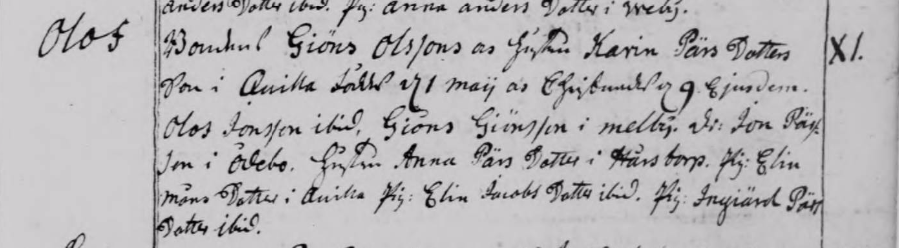 anders Dotter ibid. Pig: Anna anders Dotter i Weby.
Olof Bondens Giöns Olssons ac Hustru Karin Pärs Dotters XI.
Son i Quilla föddes d 1 maij ac Christnades d 9 Ejusdem.
Olof Jonsson ibid. Giöns Giönsson i melby. Dr: Jon Pärs
son iÖdebo. Hustru Anna Pärs Dotter i Hårstorp. Pig: Elin
måns Dotter i Quilla Pig: Elin Jacobs Dotter ibid. Pig: Ingiärd Pärs
Dotter ibid.